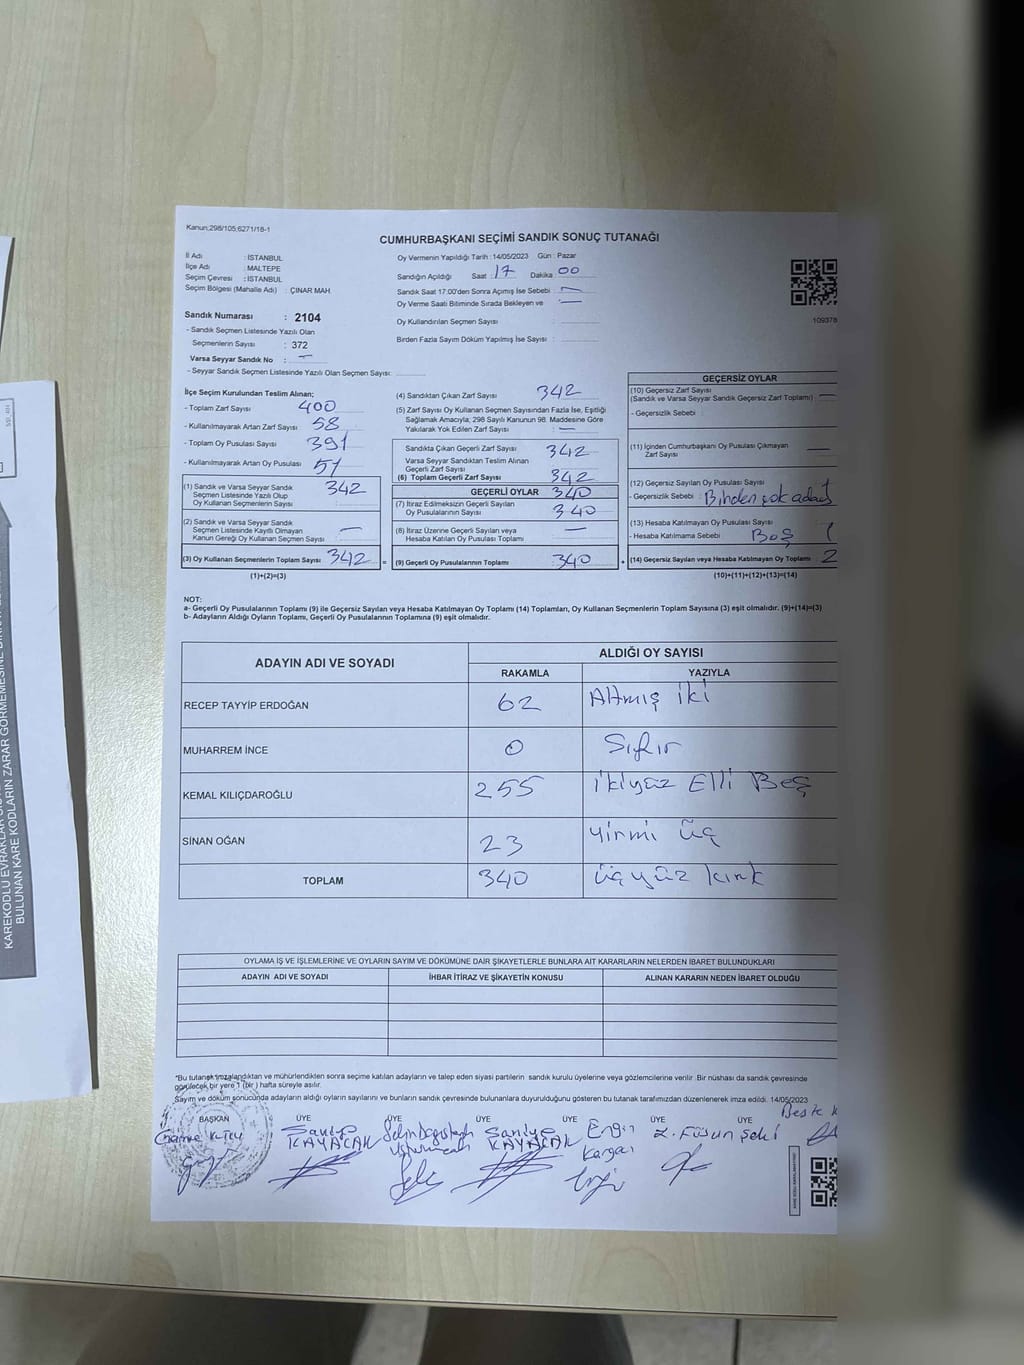 Kanun;298/105;6271/18-1
CUMHURBAŞKANI SEÇİMİ SANDIK SONUÇ TUTANAĞI
İl Adı : İSTANBUL
İlçe Adı : MALTEPE
Seçim Çevresi : İSTANBUL
Seçim Bölgesi (Mahalle Adı) : ÇINAR MAH.
Sandık Numarası : 2104
- Sandık Seçmen Listesinde Yazılı Olan
Seçmenlerin Sayısı : 372
Varsa Seyyar Sandık No : —
- Seyyar Sandık Seçmen Listesinde Yazılı Olan Seçmen Sayısı:
Oy Vermenin Yapıldığı Tarih : 14/05/2023 Gün : Pazar
Sandığın Açıldığı Saat : 17 Dakika 00
Sandık Saat 17:00'den Sonra Açımış İse Sebebi : —
Oy Verme Saati Bitiminde Sırada Bekleyen ve : —
Oy Kullandırılan Seçmen Sayısı :
Birden Fazla Sayım Döküm Yapılmış İse Sayısı :
109378
İlçe Seçim Kurulundan Teslim Alınan;
- Toplam Zarf Sayısı 400
- Kullanılmayarak Artan Zarf Sayısı 58
- Toplam Oy Pusulası Sayısı 391
- Kullanılmayarak Artan Oy Pusulası 51
(1) Sandık ve Varsa Seyyar Sandık
Seçmen Listesinde Yazılı Olup
Oy Kullanan Seçmenlerin Sayısı 342
(2) Sandık ve Varsa Seyyar Sandık
Seçmen Listesinde Kayıtlı Olmayan
Kanun Gereği Oy Kullanan Seçmen Sayısı —
(3) Oy Kullanan Seçmenlerin Toplam Sayısı 342 =
(1)+(2)=(3)
(4) Sandıktan Çıkan Zarf Sayısı 342
(5) Zarf Sayısı Oy Kullanan Seçmen Sayısından Fazla İse, Eşitliği
Sağlamak Amacıyla; 298 Sayılı Kanunun 98. Maddesine Göre
Yakılarak Yok Edilen Zarf Sayısı : —
Sandıkta Çıkan Geçerli Zarf Sayısı 342
Varsa Seyyar Sandıktan Teslim Alınan
Geçerli Zarf Sayısı
(6) Toplam Geçerli Zarf Sayısı 342
GEÇERLİ OYLAR 340
(7) İtiraz Edilmeksizin Geçerli Sayılan
Oy Pusulalarının Sayısı 340
(8) İtiraz Üzerine Geçerli Sayılan veya
Hesaba Katılan Oy Pusulası Toplamı —
(9) Geçerli Oy Pusulalarının Toplamı 340 +
GEÇERSİZ OYLAR
(10) Geçersiz Zarf Sayısı
(Sandık ve Varsa Seyyar Sandık Geçersiz Zarf Toplamı) —
- Geçersizlik Sebebi :
(11) İçinden Cumhurbaşkanı Oy Pusulası Çıkmayan
Zarf Sayısı —
(12) Geçersiz Sayılan Oy Pusulası Sayısı 1
- Geçersizlik Sebebi : Birden çok aday
(13) Hesaba Katılmayan Oy Pusulası Sayısı
- Hesaba Katılmama Sebebi : Boş 1
(14) Geçersiz Sayılan veya Hesaba Katılmayan Oy Toplamı 2
(10)+(11)+(12)+(13)=(14)
NOT:
a- Geçerli Oy Pusulalarının Toplamı (9) ile Geçersiz Sayılan veya Hesaba Katılmayan Oy Toplamı (14) Toplamları, Oy Kullanan Seçmenlerin Toplam Sayısına (3) eşit olmalıdır. (9)+(14)=(3)
b- Adayların Aldığı Oyların Toplamı, Geçerli Oy Pusulalarının Toplamına (9) eşit olmalıdır.
ADAYIN ADI VE SOYADI
ALDIĞI OY SAYISI
RAKAMLA YAZIYLA
RECEP TAYYİP ERDOĞAN 62 Altmış iki
MUHARREM İNCE 0 Sıfır
KEMAL KILIÇDAROĞLU 255 ikiyüz Elli Beş
SİNAN OĞAN 23 yirmi üç
TOPLAM 340 üçyüz kırk
OYLAMA İŞ VE İŞLEMLERİNE VE OYLARIN SAYIM VE DÖKÜMÜNE DAİR ŞİKAYETLERLE BUNLARA AİT KARARLARIN NELERDEN İBARET BULUNDUKLARI
ADAYIN ADI VE SOYADI İHBAR İTİRAZ VE ŞİKAYETİN KONUSU ALINAN KARARIN NEDEN İBARET OLDUĞU
*Bu tutanak imzalandıktan ve mühürlendikten sonra seçime katılan adayların ve talep eden siyasi partilerin sandık kurulu üyelerine veya gözlemcilerine verilir .Bir nüshası da sandık çevresinde
görülecek bir yere 1 (bir ) hafta süreyle asılır.
Sayım ve döküm sonucunda adayların aldığı oyların sayılarını ve bunların sandık çevresinde bulunanlara duyurulduğunu gösteren bu tutanak tarafımızdan düzenlenerek imza edildi. 14/05/2023
BAŞKAN ÜYE ÜYE ÜYE ÜYE ÜYE ÜYE
Saniye KAYACAK
Saniye KAYACAK
Engin
Z. Füsun Şeki
Beste K
KAREKODLU EVRAKLAR
BULUNAN KARE KODLARIN ZARAR GÖRMEMESİNE